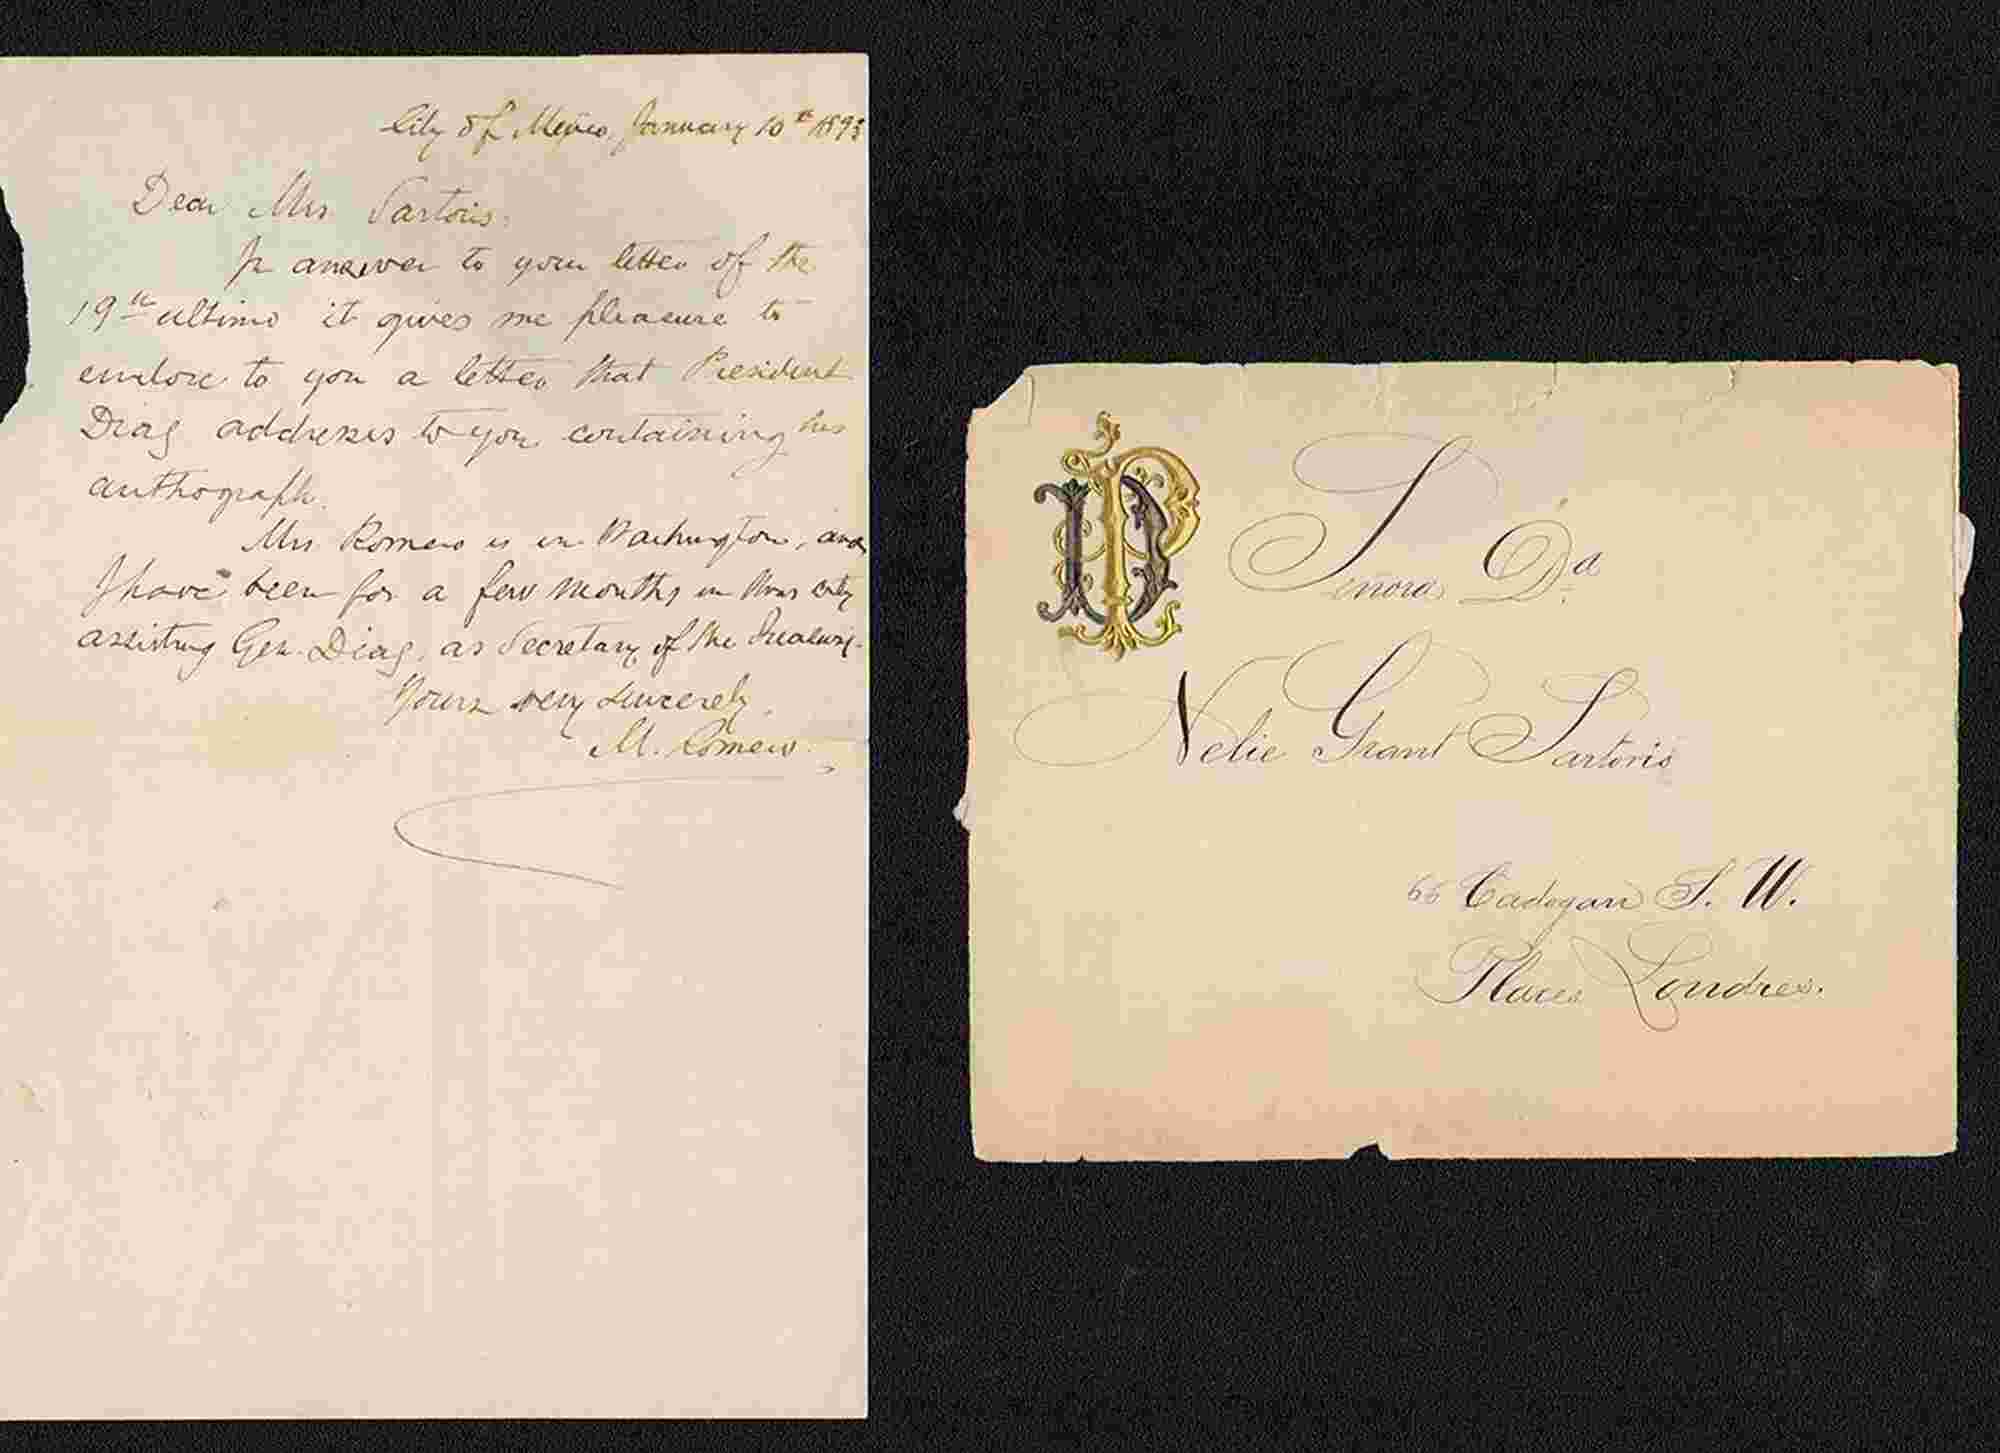 City of Mexico, January 10th 1893
Dear Mrs. Sartoris:
In answer to your letter of the
19th ultimo it gives me pleasure to
enclose to you a letter that President
Diaz addresses to you containing his
authograph.
Mrs. Romero is in Washington, and
I have been for a few months in this city
assisting Gen. Diaz, as Secretary of the Treasury.
Yours very sincerely,
M. Romero.
PD
Señora Da.
Nelie Grant Sartoris
66 Cadogan S. W.
Place Londres.